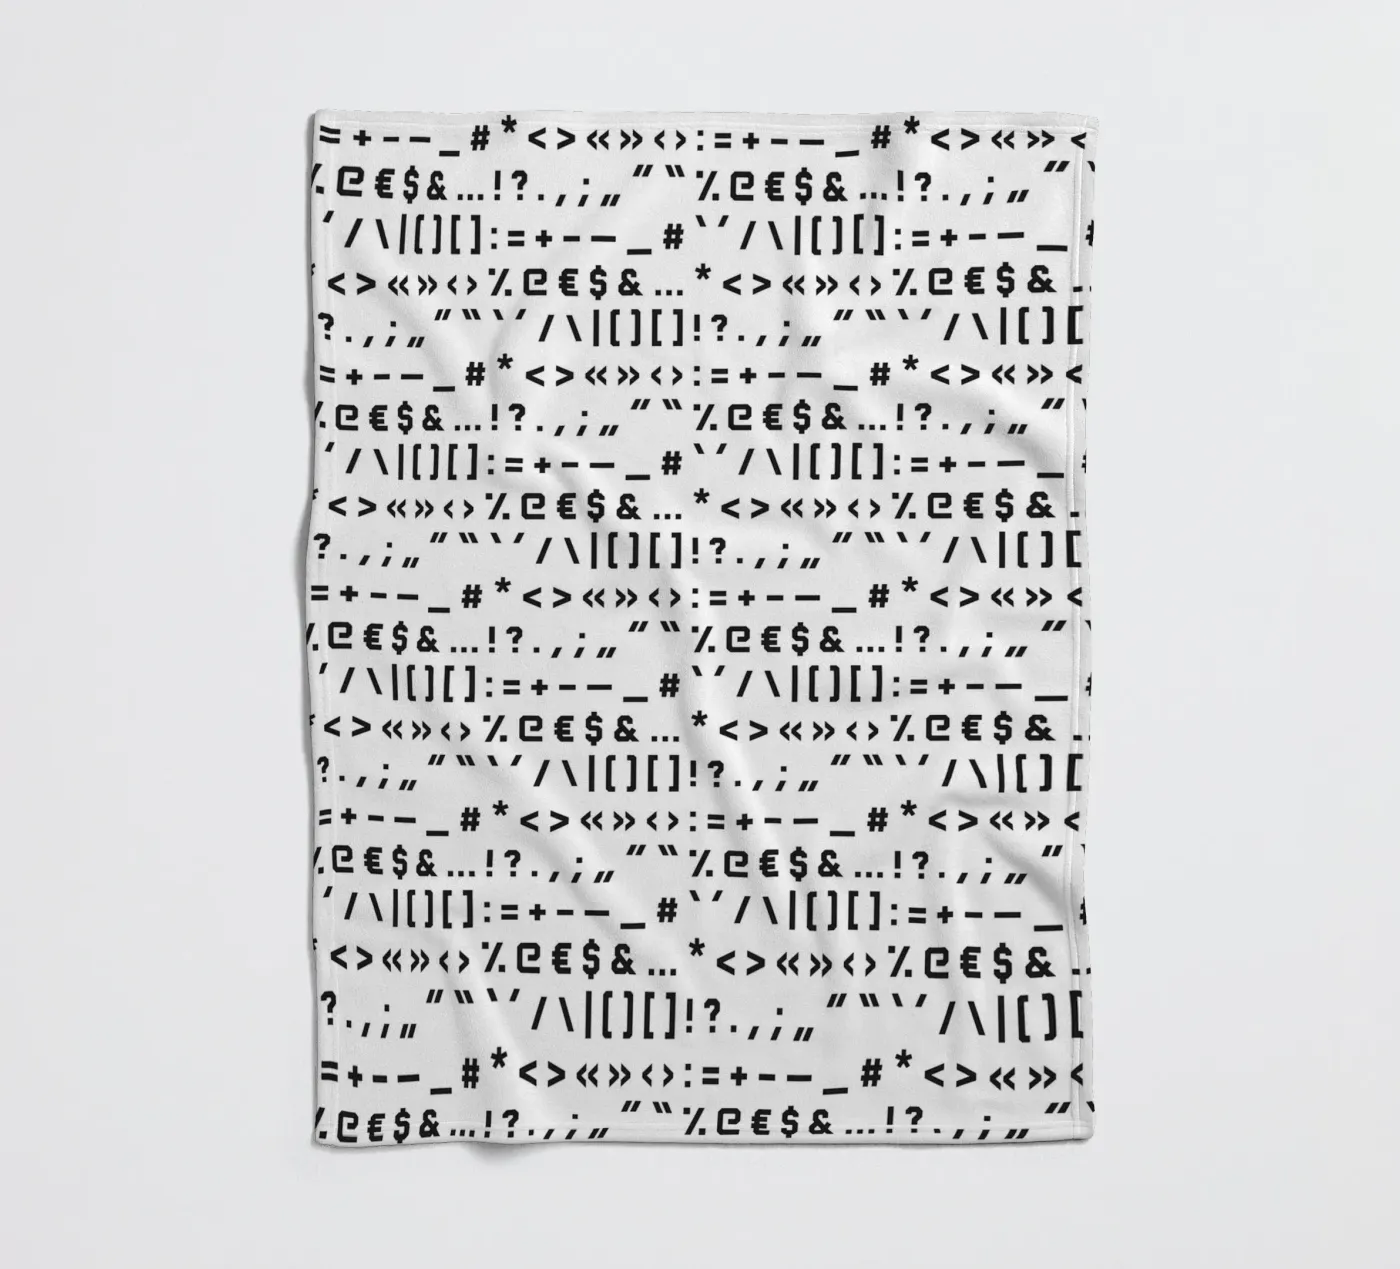 = + - — _ # * < > « » ‹ › : = + - — _ # * < > « » <
٪ @ € $ & … ! ? . , ; „ ” “ ٪ @ € $ & … ! ? . , ; „ ”
´ / \ | [ ] [ ] : = + - — _ # ` ´ / \ | [ ] [ ] : = + - — _ #
* < > « » ‹ › ٪ @ € $ & … * < > « » ‹ › ٪ @ € $ & …
? . , ; „ ” “ ` ´ / \ | [ ] [ ] ! ? . , ; „ ” “ ` ´ / \ | [ ] [
= + - — _ # * < > « » ‹ › : = + - — _ # * < > « » <
٪ @ € $ & … ! ? . , ; „ ” “ ٪ @ € $ & … ! ? . , ; „ ”
´ / \ | [ ] [ ] : = + - — _ # ` ´ / \ | [ ] [ ] : = + - — _ #
* < > « » ‹ › ٪ @ € $ & … * < > « » ‹ › ٪ @ € $ & .
? . , ; „ ” “ ` ´ / \ | [ ] [ ] ! ? . , ; „ ” “ ` ´ / \ | [ ] [
= + - — _ # * < > « » ‹ › : = + - — _ # * < > « » <
٪ @ € $ & … ! ? . , ; „ ” “ ٪ @ € $ & … ! ? . , ; „ ”
´ / \ | [ ] [ ] : = + - — _ # ` ´ / \ | [ ] [ ] : = + - — _ #
* < > « » ‹ › ٪ @ € $ & … * < > « » ‹ › ٪ @ € $ & …
? . , ; „ ” “ ` ´ / \ | [ ] [ ] ! ? . , ; „ ” “ ` ´ / \ | [ ] [
= + - — _ # * < > « » ‹ › : = + - — _ # * < > « » <
٪ @ € $ & … ! ? . , ; „ ” “ ٪ @ € $ & … ! ? . , ; „ ”
´ / \ | [ ] [ ] : = + - — _ # ` ´ / \ | [ ] [ ] : = + - — _ #
* < > « » ‹ › ٪ @ € $ & … * < > « » ‹ › ٪ @ € $ & …
? . , ; „ ” “ ` ´ / \ | [ ] [ ] ! ? . , ; „ ” “ ` ´ / \ | [ ] [
= + - — _ # * < > « » ‹ › : = + - — _ # * < > « » <
٪ @ € $ & … ! ? . , ; „ ” “ ٪ @ € $ & … ! ? . , ; „ ”